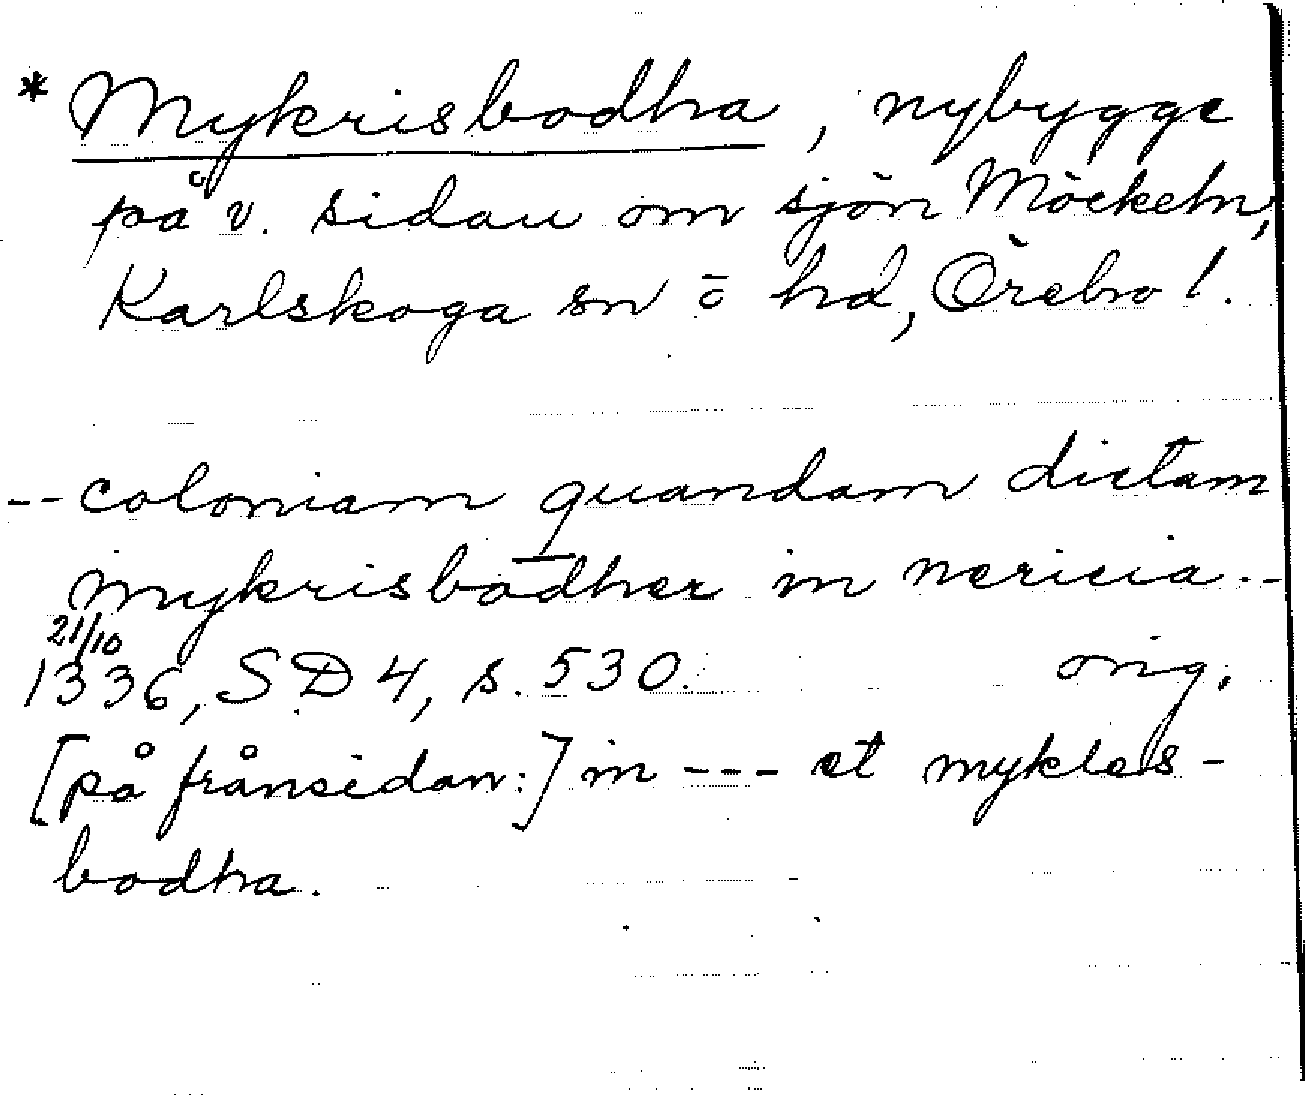 * Mykrisbodha, nybygge
på v. sidan om sjön Möckeln,
Karlskoga sn o hd, Örebro l.
-- coloniam quandam dictam
mykrisbodher in nericia --
21/10
1336, SD 4, s. 530. orig.
[på frånsidan:] in --- et mykles-
bodha.